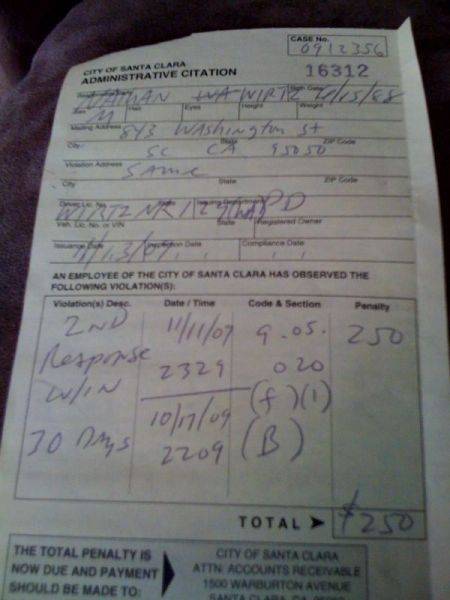 CASE No.
0912356
CITY OF SANTA CLARA
ADMINISTRATIVE CITATION
16312
NATHAN WA WIRTZ 6/15/88
Sex Hair Eyes Height Weight
M
Mailing Address 843 Washington St
City State ZIP Code
SC CA 95050
Violation Address Same
City State ZIP Code
Driver Lic. No. State Issuing Department
PD
Veh. Lic. No. or VIN State Registered Owner
Issuance Date Inspection Date Compliance Date
AN EMPLOYEE OF THE CITY OF SANTA CLARA HAS OBSERVED THE
FOLLOWING VIOLATION(S):
Violation(s) Desc. Date / Time Code & Section Penalty
2ND 11/11/09 9.05. 250
Response 2329 020
W/IN (f)(1)
10/17/09
30 DAYS 2209 (B)
TOTAL $250
THE TOTAL PENALTY IS CITY OF SANTA CLARA
NOW DUE AND PAYMENT ATTN: ACCOUNTS RECEIVABLE
SHOULD BE MADE TO: 1500 WARBURTON AVENUE
SANTA CLARA, CA